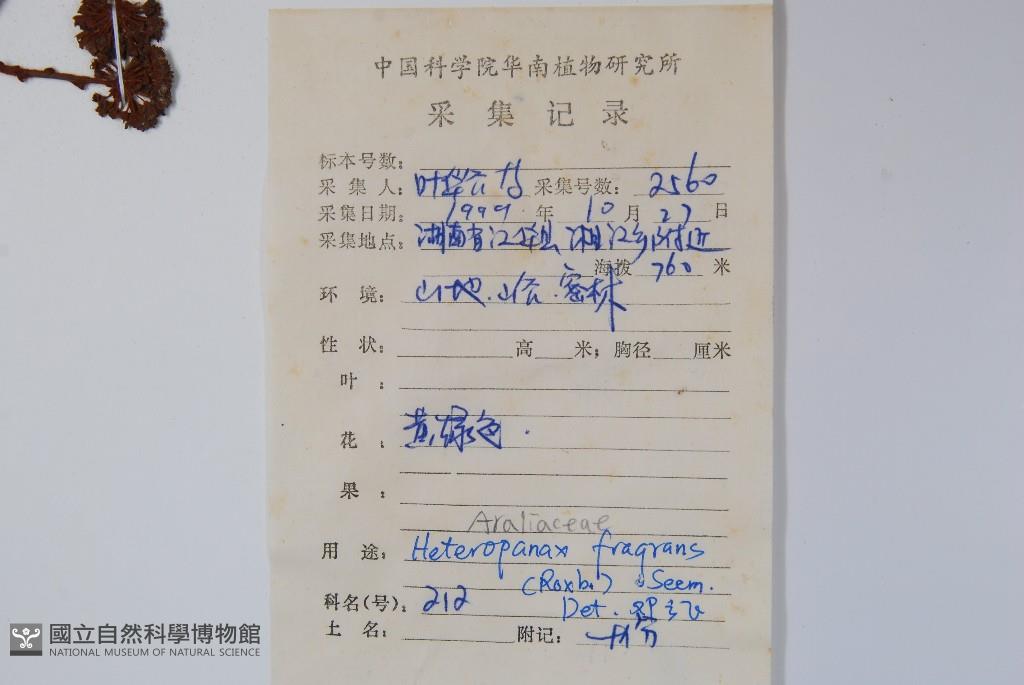 中国科学院华南植物研究所
采集记录
标本号数：
采集人：叶华谷 采集号数：2560
采集日期：1999年10月27日
采集地点：湖南省江华县湘江乡附近
海拨760米
环境：山地.山谷.密林
性状：高米；胸径厘米
叶：
花：黄绿色.
果：
Araliaceae
用途：Heteropanax fragrans
(Roxb.) Seem.
科名(号)：212 Det.
土名：附记：
國立自然科學博物館
NATIONAL MUSEUM OF NATURAL SCIENCE